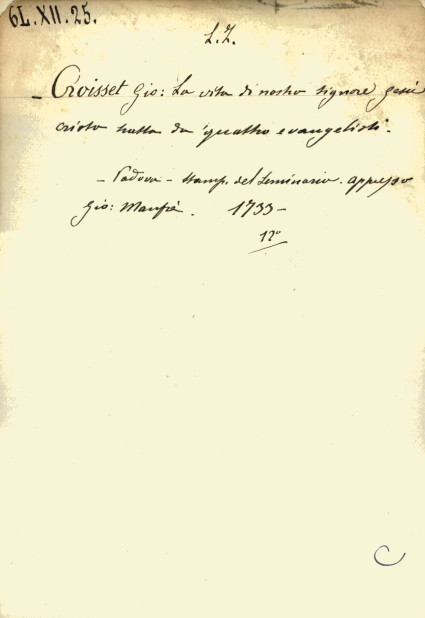 6L.XII.25.
L.Z.
- Croisset Gio: La vita di nostro signore gesù
cristo tratta da quattro evangelisti.
- Padova - Stamp. del Seminario. appresso
Gio: Manfrè. 1733 -
12º
C